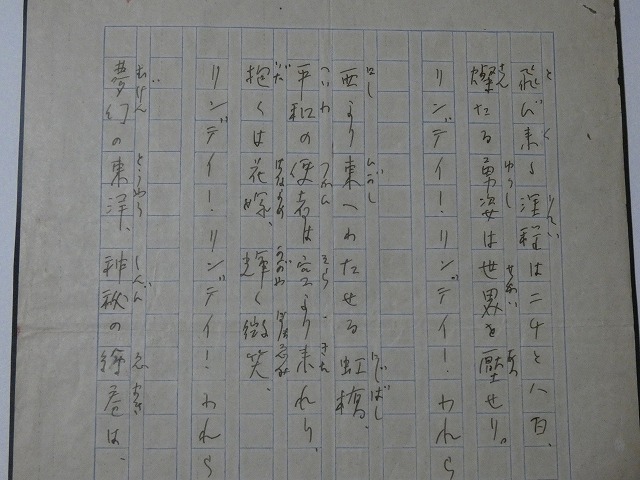 と く りてい
飛び来る浬程は二千と八百、
さん ゆうし せかい
燦たる勇姿は世界を壓せり。
リンデイ!リンデイ!われら
にし ひがし にじばし
西より東へわたせる虹橋、
へいわ そら きた
平和の使者は空より来れり、
いだ はなよめ かがや ほほえみ
抱くは花嫁、輝く微笑、
リンデイ!リンデイ!われら
むげん とうやう しんぴ ゑまき
夢幻の東洋、神秘の繪巻は、